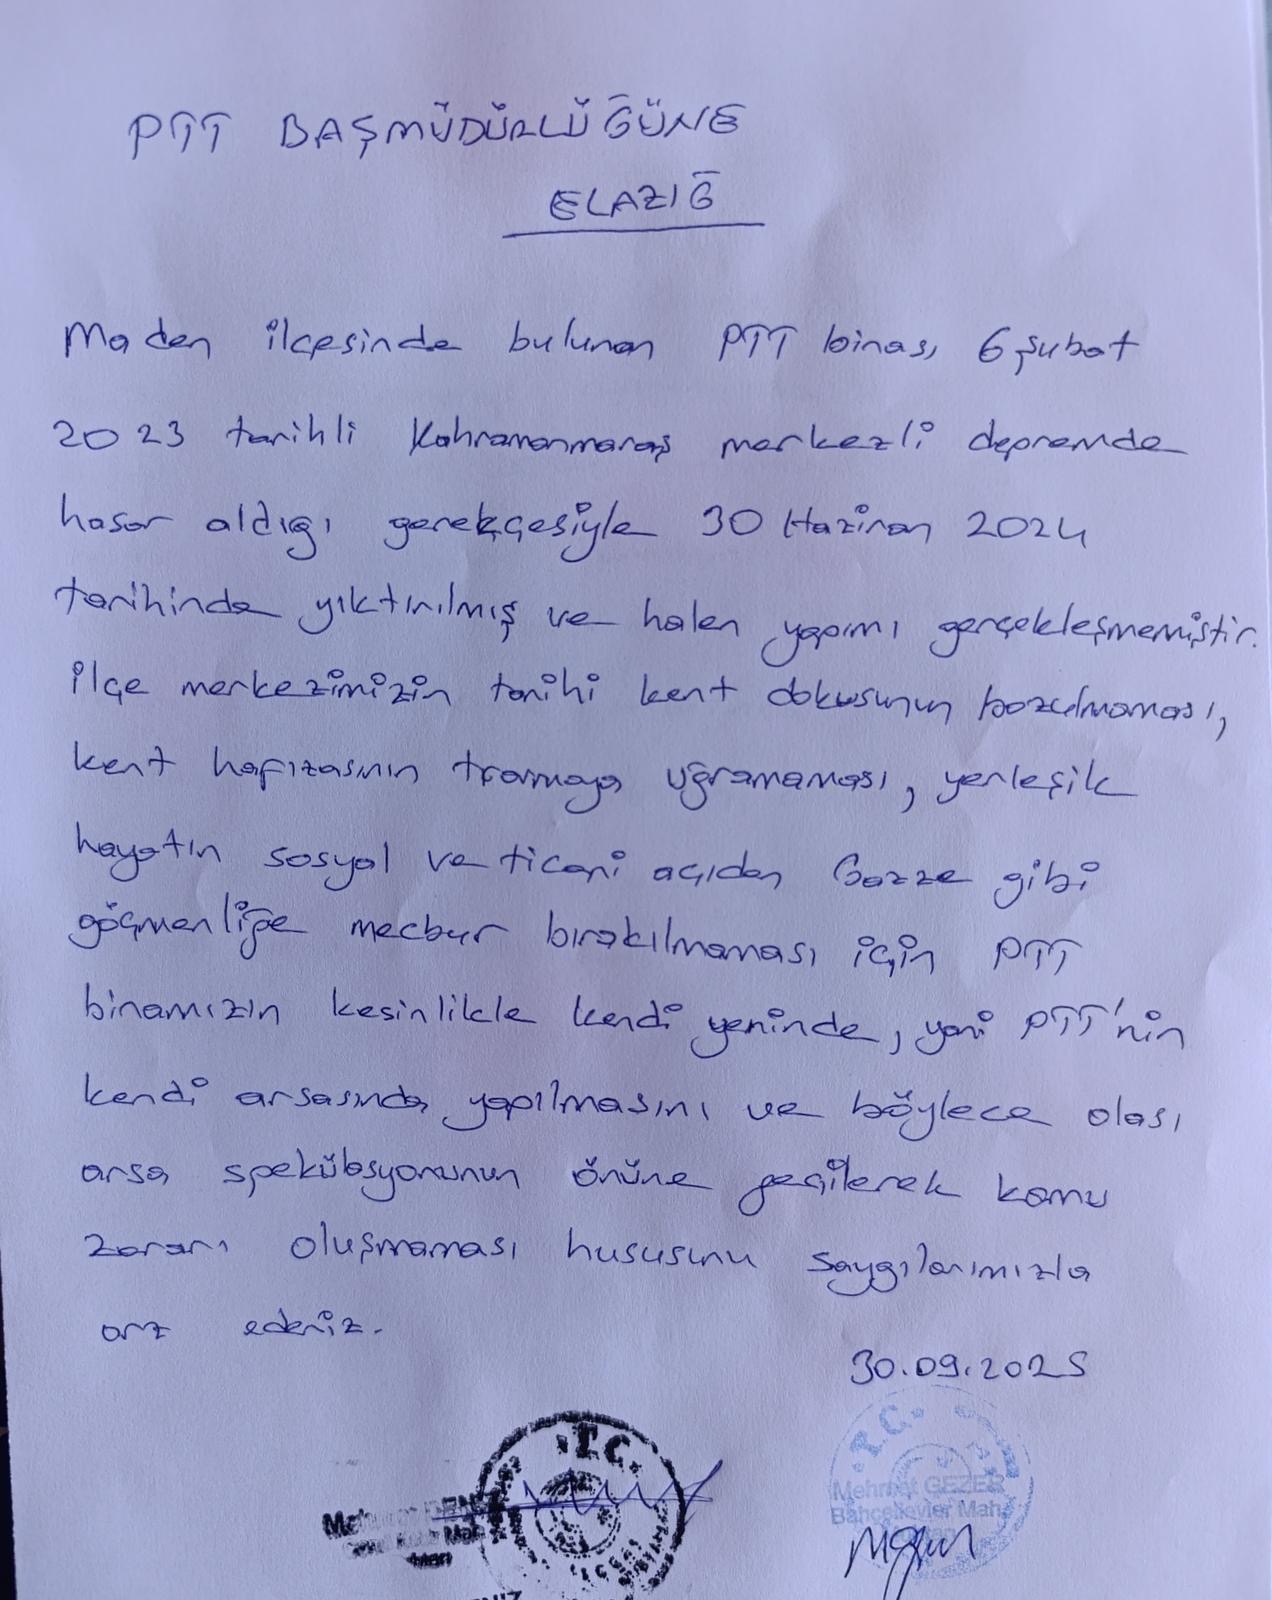 PTT BAŞMÜDÜRLÜĞÜNE
ELAZIĞ
Maden ilçesinde bulunan PTT binası 6 Şubat
2023 tarihli Kahramanmaraş merkezli depremde
hasar aldığı gerekçesiyle 30 Haziran 2024
tarihinde yıktırılmış ve halen yapımı gerçekleşmemiştir.
İlçe merkezimizin tarihi kent dokusunun bozulmaması,
kent hafızasının travmaya uğramaması, yerleşik
hayatın sosyal ve ticari açıdan Gazze gibi
göçmenliğe mecbur bırakılmaması için PTT
binamızın kesinlikle kendi yerinde, yani PTT'nin
kendi arsasında yapılmasını ve böylece olası
arsa spekülasyonunun önüne geçilerek kamu
zararı oluşmaması hususunu saygılarımızla
arz ederiz.
30.09.2025
T.C.
T.C.
Mehmet GEZER
Bahçelievler Mah.